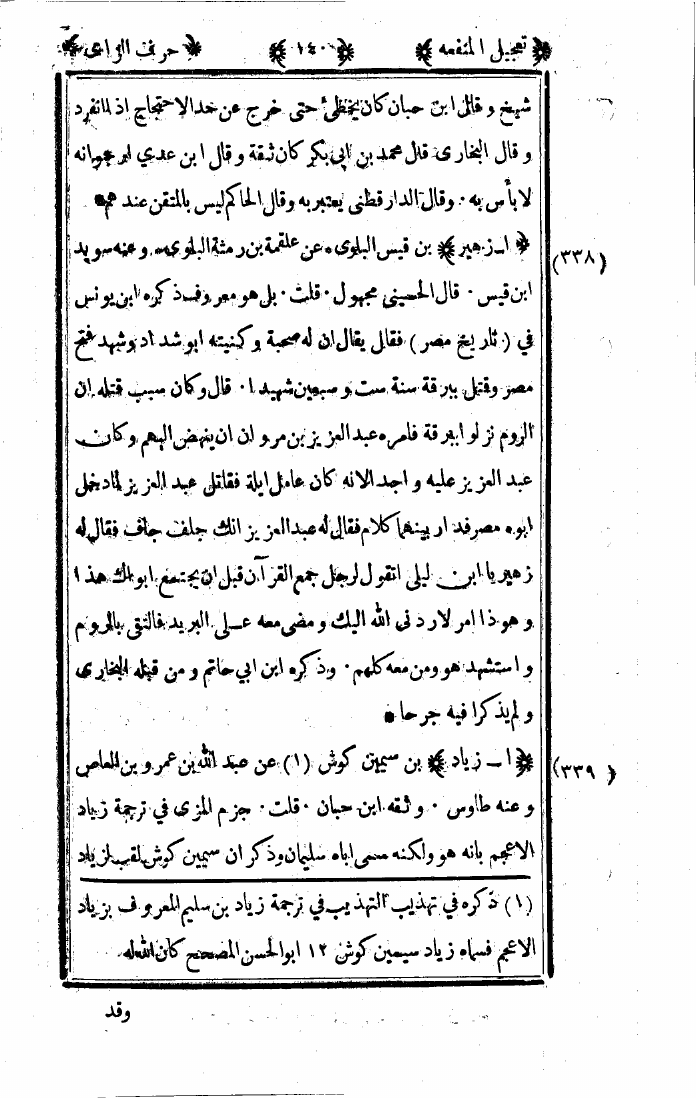 تعجيل المنفعه ﴿١٤٠﴾ حرف الزاى
شيخ و قال ابن حبان كان يخطئ حتى خرج عن حد الاحتجاج اذا انفرد
و قال البخارى قال محمد بن ابى بكر كان ثقة و قال ابن عدي ابو عوانه
لا بأس به ٠ وقال الدار قطنى يعتبر به وقال الحاكم ليس بالمتقن عند هم ٠
﴿ا ــ زهير﴾ بن قيس البلوى ٠ عن علقمة بن رمثة البلوى ٠ و عنه سويد (٣٣٨)
ابن قيس ٠ قال الحسينى مجهول ٠ قلت ٠ بل هو معروف ذكره ابن يونس
في ( تاريخ مصر ) فقال يقال ان له صحبة و كنيته ابو شداد وشهد فتح
مصر وقتل ببرقة سنة ست و سبعين شهيدا ٠ قال وكان سبب قتله ان
الروم نزلوا ببرقة فامره عبد العزيز بن مروان ان ينهض اليهم و كان
عبد العزيز عليه و اجد الانه كان عامل ايلة فقاتل عبد العزيز لما دخل
ابوه مصر فدار بينهما كلام فقال له عبد العزيز انك جلف جاف فقال له
زهير يا ابن ليلى اتقول لرجل جمع القرآن قبل ان يجتمع ابواك هذا
و هو ذا امر لا ردنى الله اليك و مضى معه على البريد فالتقى بالروم
و استشهد هو ومن معه كلهم ٠ وذكره ابن ابي حاتم و من قبله البخارى
و لم يذكرا فيه جرحا ٠
﴿ا ــ زياد﴾ بن سيمين كوش (١) عن عبد الله بن عمرو بن العاص (٣٣٩)
و عنه طاوس ٠ و ثقه ابن حبان ٠ قلت ٠ جزم المزى في ترجمة زياد
الاعجم بانه هو ولكنه سمى اباه سليمان وذكر ان سيمين كوش لقب لزياد
(١) ذكره في تهذيب التهذيب في ترجمة زياد بن سليم المعروف بزياد
الاعجم فسماه زياد سيمين كوش ١٢ ابو الحسن المصحح كان الله له
وقد